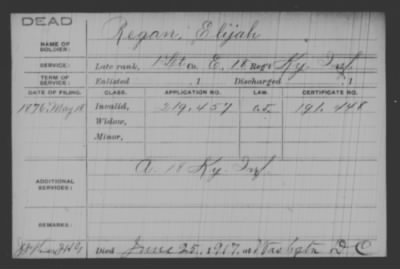 DEAD
Regan, Elijah
NAME OF SOLDIER:
SERVICE: Late rank, 1st Co. E, 18 Reg't Ky Inf
TERM OF SERVICE: Enlisted , 1 Discharged , 1
DATE OF FILING. CLASS. APPLICATION NO. LAW. CERTIFICATE NO.
1876, May 18 Invalid, 219.457 191.448
Widow,
Minor,
A. 18 Ky Inf
ADDITIONAL SERVICES:
REMARKS:
Died June 25, 1917, at D C